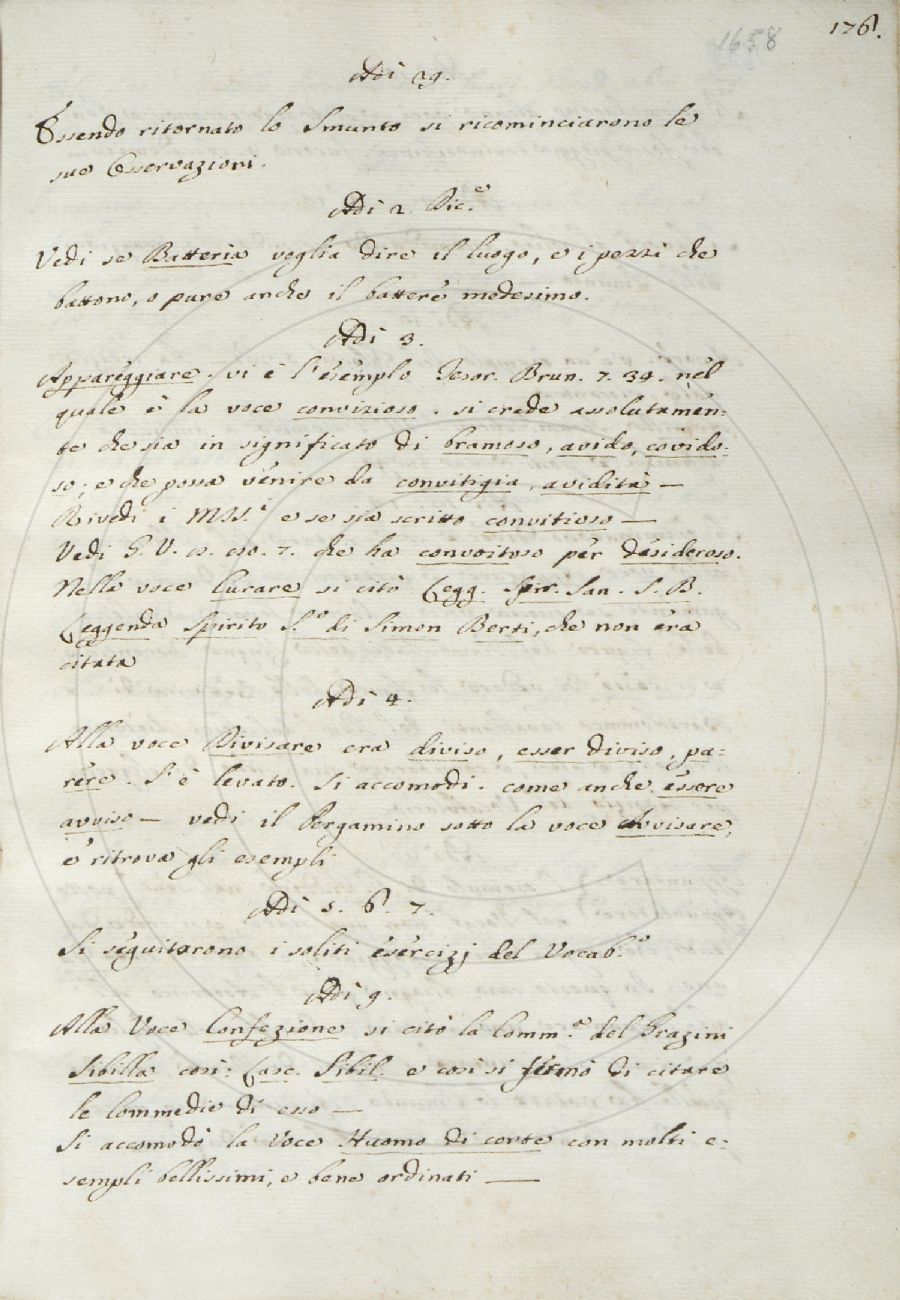 1658
176.
Adi 29.
Essendo ritornato lo Smunto si ricominciarono le
sue Osservazioni.
Adi 2. Dic.e
Vedi se Batteria voglia dire il luogo, e i pezzi che
battono, o pure anche il battere medesimo.
Adi 3.
Appareggiare. vi è l'esemplo Tesor. Brun. 7. 34. nel
quale è la voce convizioso. si crede assolutamen:
te che sia in significato di bramoso, avido, covido:
so; e che possa venire da convitigia, avidità —
Rivedi i MSS.i e se sia scritto convitioso —
Vedi G. V. 7. che ha convoitoso per desideroso.
Nella voce Curare si citò Legg. Spir. San. S. B.
Leggenda Spirito S.o di Simon Berti, che non era
citata
Adi 4.
Alla voce Divisare era diviso, esser diviso, pa:
rere. Si è levato. Si accomodi. come anche essere
avviso — vedi il Pergamino sotto la voce Avvisare,
e ritrova gli esempli
Adi 5. 6. 7.
Si seguitarono i soliti esercizj del Vocab.o
Adi 9.
Alla Voce Confezione si citò la Comm.a del Grazini
Sibilla così: Lasc. Sibil. e così si fermò di citare
le Commedie di esso —
Si accomodò la Voce Huomo di corte con molti e:
sempli bellissimi, e bene ordinati —